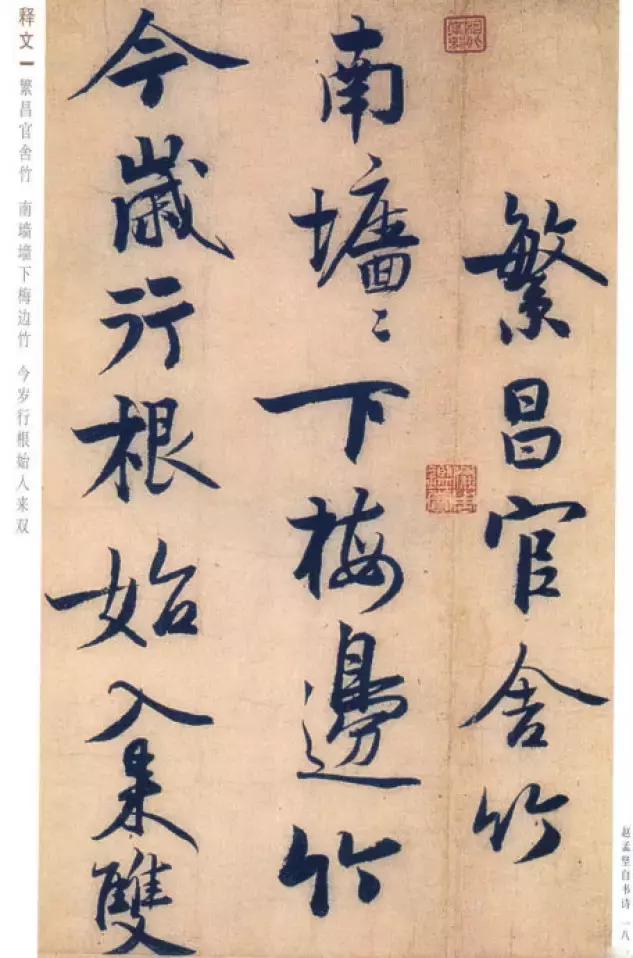 繁昌官舍竹
南墻〻下梅邊竹
今歲行根始入來雙
释文一
繁昌官舍竹 南墙墙下梅边竹 今岁行根始入来双
赵孟坚自书诗 一八